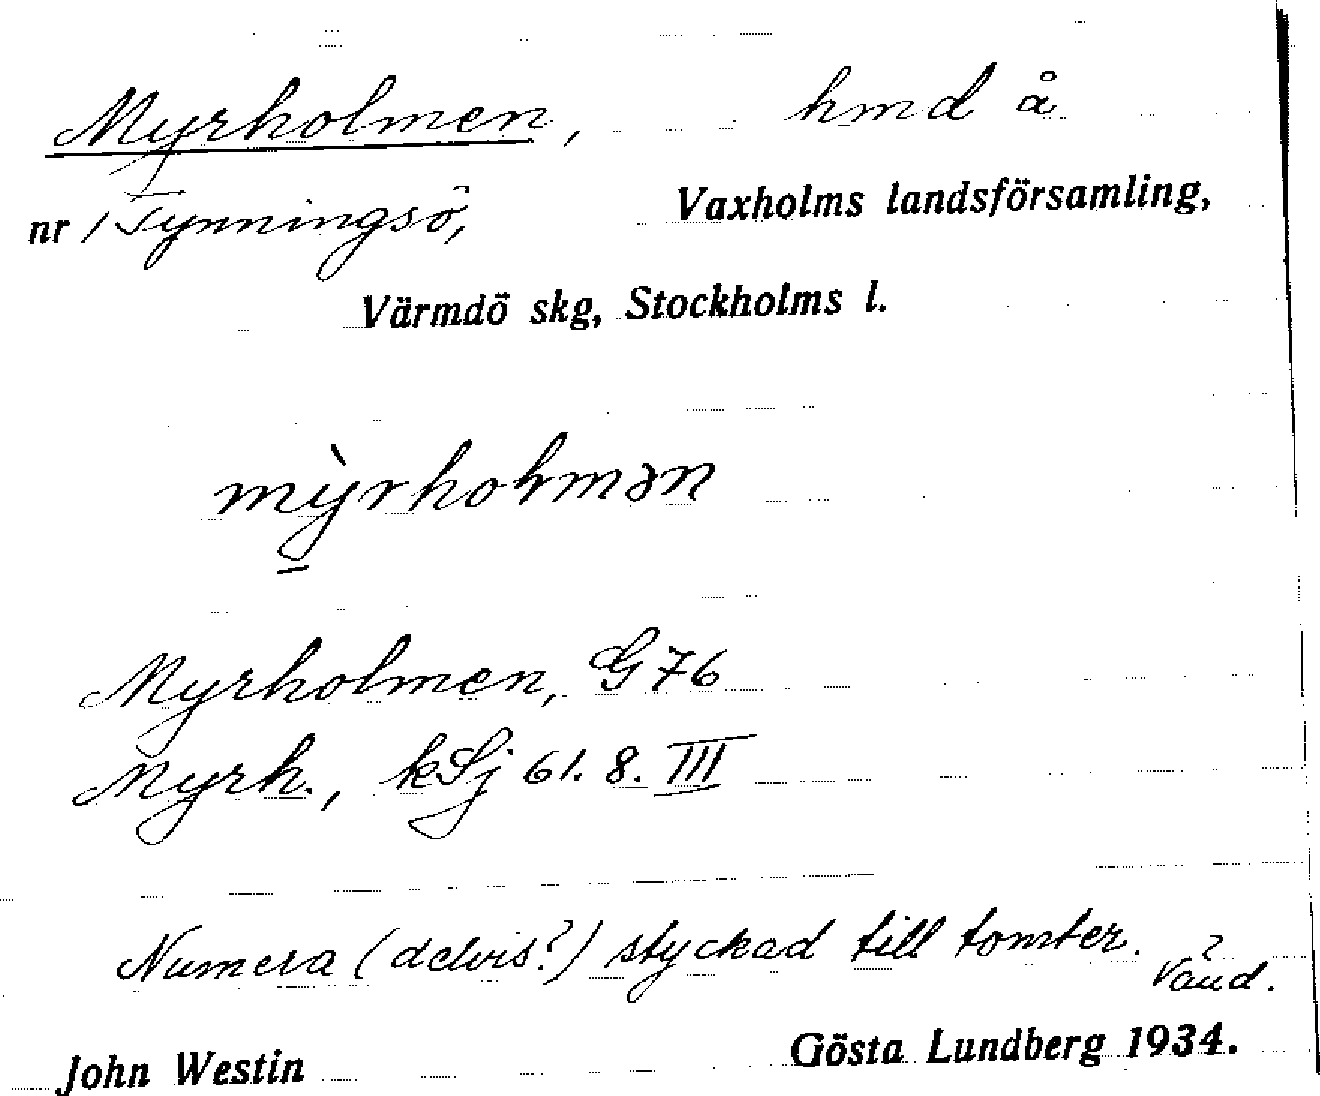 Myrholmen, hmd å
nr 1 Tynningsö, Vaxholms landsförsamling,
Värmdö skg, Stockholms l.
mỳ̠rholmən
Myrholmen, G 76
Myrh., kSj 61. 8. III
Numera (delvis?) styckad till tomter.
Vänd.
John Westin Gösta Lundberg 1934.